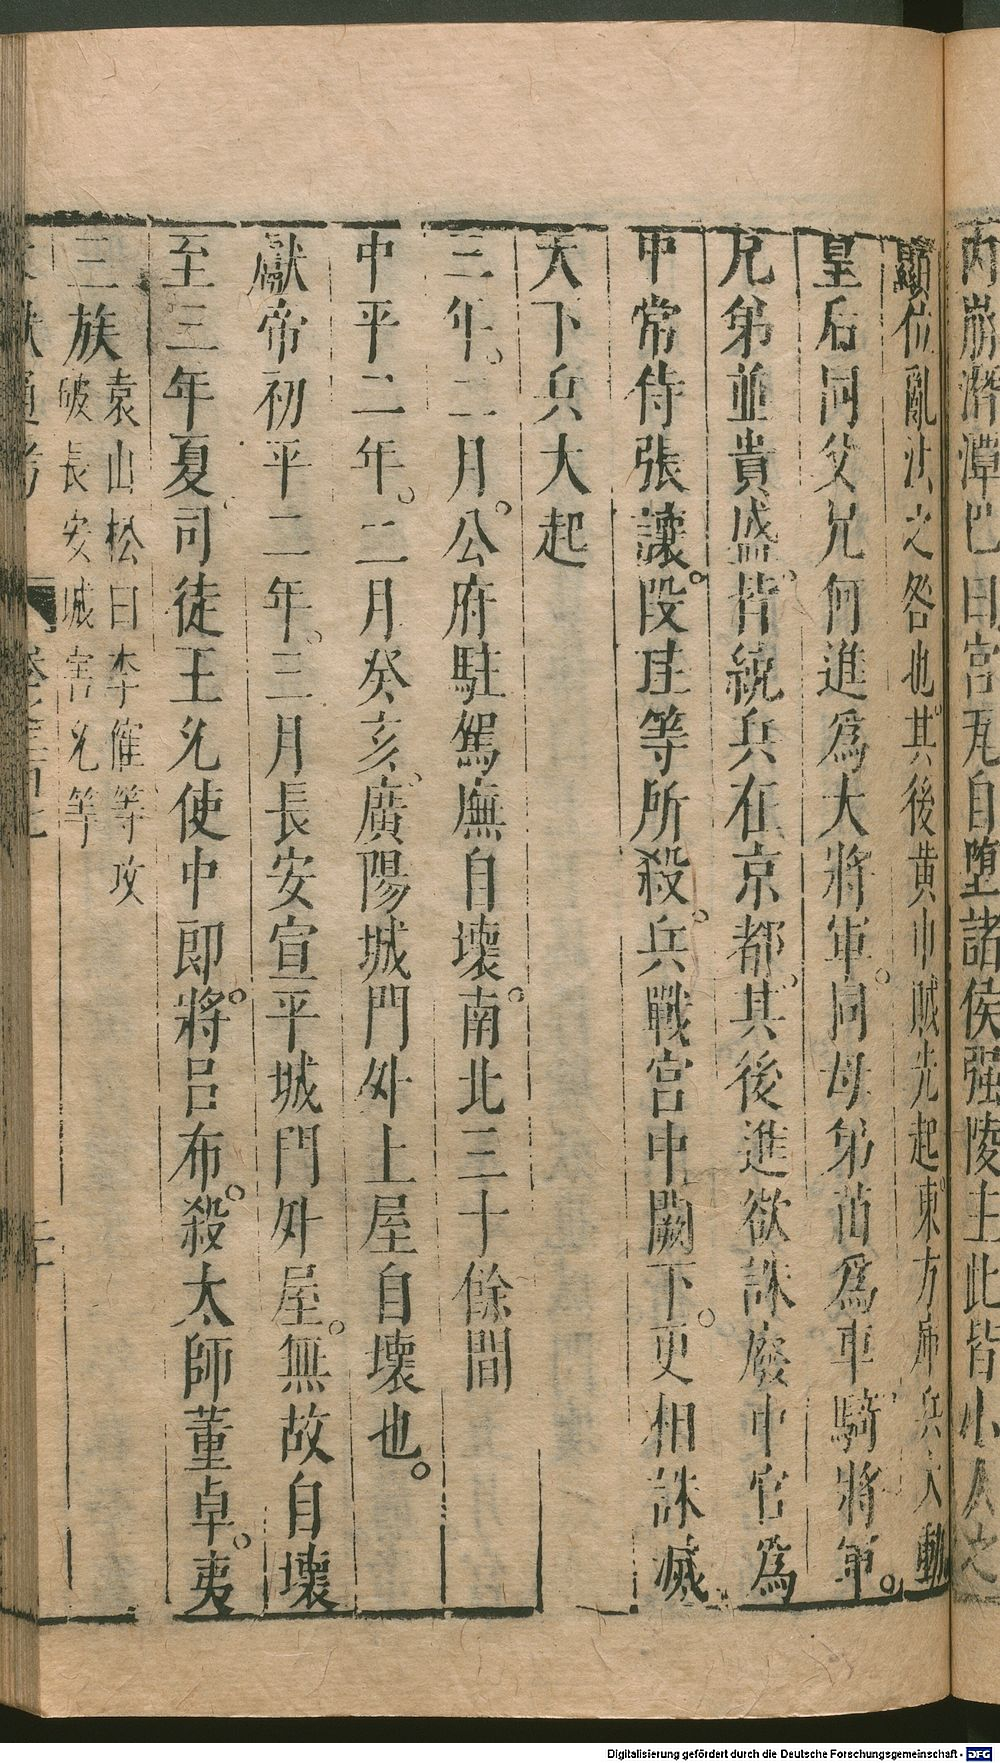 內崩潛潭巴曰宮瓦自墮諸侯强陵主此皆小人之
顯位亂法之咎也。其後黃巾賊先起。東方庫兵大動
皇后同父兄何進爲大將軍。同母弟苗爲車騎將軍。
兄弟並貴盛。皆統兵在京都。其後進欲誅廢中官爲
中常侍張讓。段珪等所殺。兵戰宮中闕下。更相誅滅
天下兵大起
三年。二月。公府駐駕廡自壞。南北三十餘間
中平二年。二月癸亥。廣陽城門外上屋自壞也。
獻帝初平二年。三月長安宣平城門外屋。無故自壞
至三年夏。司徒王允使中郎將。呂布。殺太師董卓。夷
三族
袁山松曰李傕等攻
破長安城害允等
文獻通考
Digitalisierung gefördert durch die Deutsche Forschungsgemeinschaft - DFG